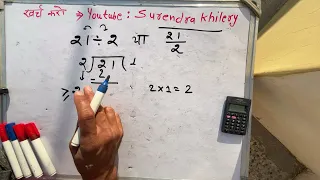 खर्च करो → Youtube : Surendra Khilery
21÷2 या 21/2
2)21(1
2
≥2
2×1=2